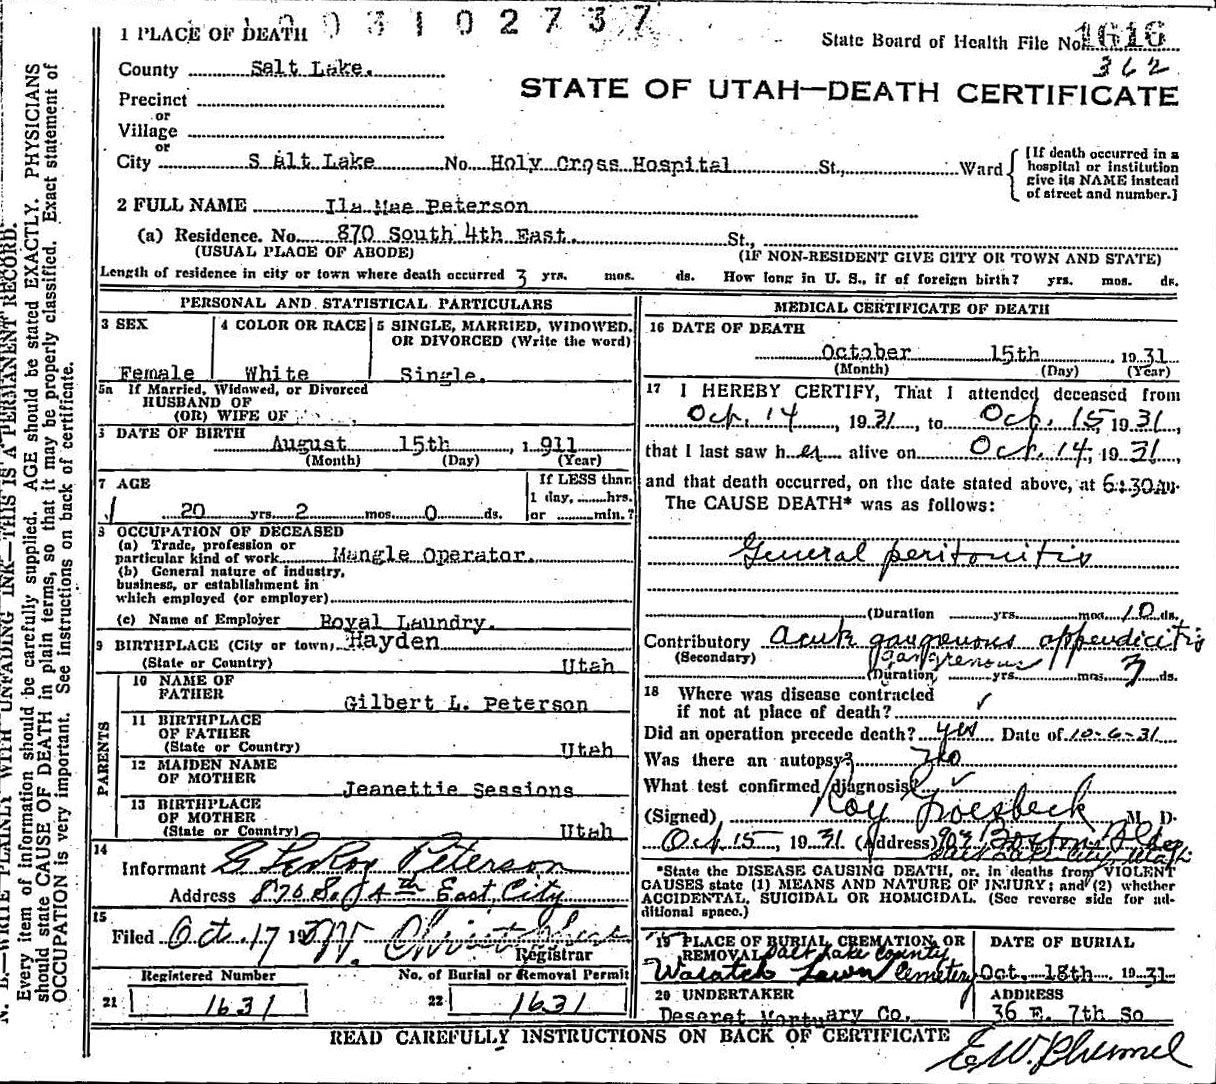 003102737
1 PLACE OF DEATH
State Board of Health File No. 1616
362
County Salt Lake.
STATE OF UTAH—DEATH CERTIFICATE
Precinct
or
Village
or
City S Alt Lake No. Holy Cross Hospital St., Ward
[If death occurred in a
hospital or institution
give its NAME instead
of street and number.]
2 FULL NAME Ila Mae Peterson
(a) Residence. No. 870 South 4th East. St.,
(USUAL PLACE OF ABODE) (IF NON-RESIDENT GIVE CITY OR TOWN AND STATE)
Length of residence in city or town where death occurred 3 yrs. mos. ds. How long in U. S., if of foreign birth? yrs. mos. ds.
PERSONAL AND STATISTICAL PARTICULARS
3 SEX
Female
4 COLOR OR RACE
White
5 SINGLE, MARRIED, WIDOWED,
OR DIVORCED (Write the word)
Single.
5a If Married, Widowed, or Divorced
HUSBAND OF
(OR) WIFE OF
DATE OF BIRTH
August 15th 1911
(Month) (Day) (Year)
7 AGE
20 yrs. 2 mos. 0 ds.
If LESS than
1 day, hrs.
or min.?
8 OCCUPATION OF DECEASED
(a) Trade, profession or
particular kind of work Mangle Operator.
(b) General nature of industry,
business, or establishment in
which employed (or employer)
(c) Name of Employer Royal Laundry.
9 BIRTHPLACE (City or town) Hayden
(State or Country) Utah
PARENTS
10 NAME OF
FATHER
Gilbert L. Peterson
11 BIRTHPLACE
OF FATHER
(State or Country) Utah
12 MAIDEN NAME
OF MOTHER
Jeanettie Sessions
13 BIRTHPLACE
OF MOTHER
(State or Country) Utah
14
Informant G LeRoy Peterson
Address 870 So 4th East City
15
Filed Oct. 17 19
Registrar
Registered Number
21 1631
No. of Burial or Removal Permit
22 1631
MEDICAL CERTIFICATE OF DEATH
16 DATE OF DEATH
October 15th, 1931
(Month) (Day) (Year)
17 I HEREBY CERTIFY, That I attended deceased from
Oct. 14, 1931, to Oct. 15, 1931,
that I last saw her alive on Oct. 14, 1931,
and that death occurred, on the date stated above, at 6:30 AM.
The CAUSE DEATH* was as follows:
General peritonitis
(Duration yrs. mos. 10 ds.
Contributory acute gangrenous appendicitis
(Secondary) gangrenous
(Duration yrs. mos. 3 ds.
18 Where was disease contracted
if not at place of death?
Did an operation precede death? yes Date of 10-6-31
Was there an autopsy? No
What test confirmed diagnosis?
(Signed) Roy Groesbeck M. D.
Oct 15, 1931 (Address) 903 Boston Bldg
Salt Lake City, Utah
*State the DISEASE CAUSING DEATH, or, in deaths from VIOLENT
CAUSES state (1) MEANS AND NATURE OF INJURY; and (2) whether
ACCIDENTAL, SUICIDAL OR HOMICIDAL. (See reverse side for ad-
ditional space.)
19 PLACE OF BURIAL, CREMATION, OR
REMOVAL Salt Lake County
Wasatch Lawn Cemetery
DATE OF BURIAL
Oct. 18th 1931
20 UNDERTAKER
Deseret Mortuary Co.
ADDRESS
36 E. 7th So
READ CAREFULLY INSTRUCTIONS ON BACK OF CERTIFICATE
N. B.—WRITE PLAINLY WITH UNFADING INK—THIS IS A PERMANENT RECORD.
Every item of information should be carefully supplied. AGE should be stated EXACTLY. PHYSICIANS
should state CAUSE OF DEATH in plain terms, so that it may be properly classified. Exact statement of
OCCUPATION is very important. See instructions on back of certificate.